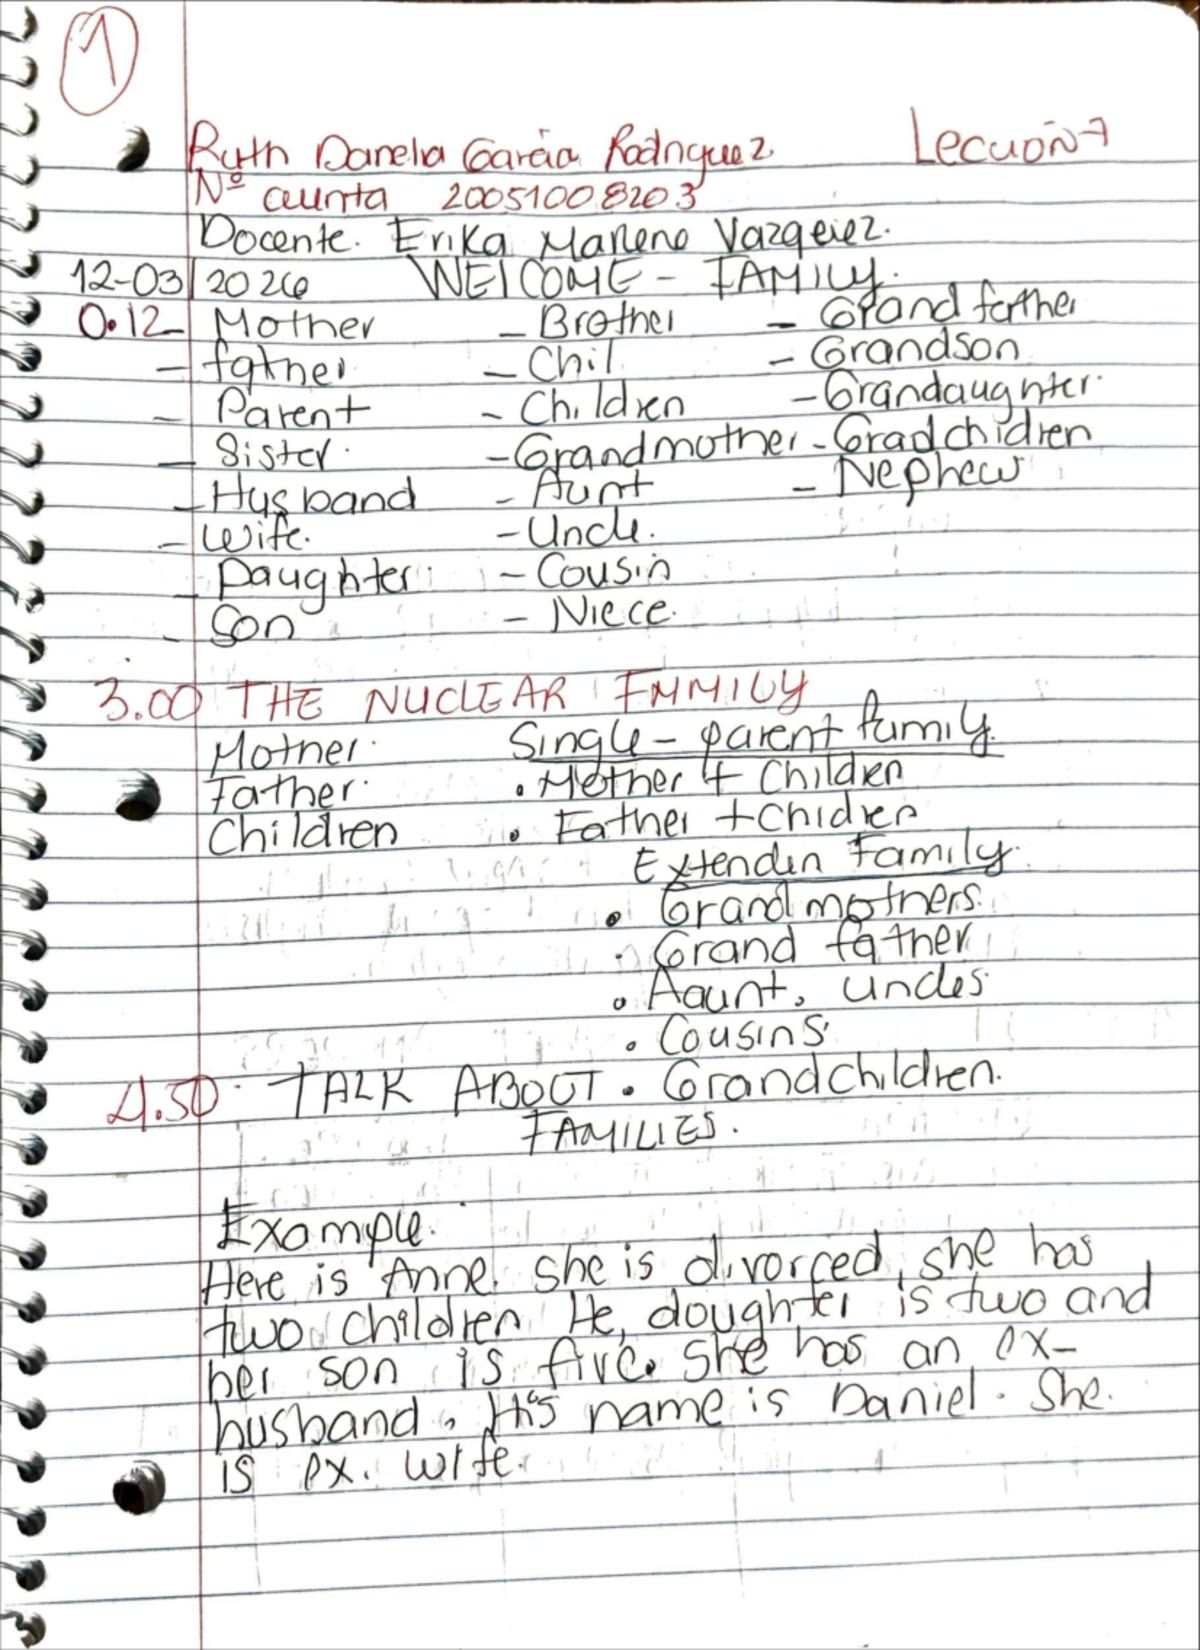 1
Ruth Danelia García Rodriguez Lección 7
Nº cuenta 20051008203
Docente. Erika Marlene Vazqeiez.
12-03/2026 WELCOME - FAMILY.
0.12 - Mother - Brother - Grand farther
- father - Chil - Grandson
- Parent - Children - Grandaughter.
- Sister. - Grandmother - Gradchidren
- Husband - Aunt - Nephew
- Wife. - Uncle.
- Daughter - Cousin
- Son - Niece.
3.00 THE NUCLEAR FMMILY
Mother. Single - parent family.
Father. • Mother + Children
Children • Father + Chidren
Extendin Family.
• Grand mothers.
• Grand father
• Aaunt, uncles
• Cousins
4.50 TALK ABOUT • Grandchildren.
FAMILIES.
Example.
Here is Anne. she is divorced, she has
two children He, doughter is two and
her son is five. she has an ex-
husband. His name is Daniel. She.
is ex. wife.